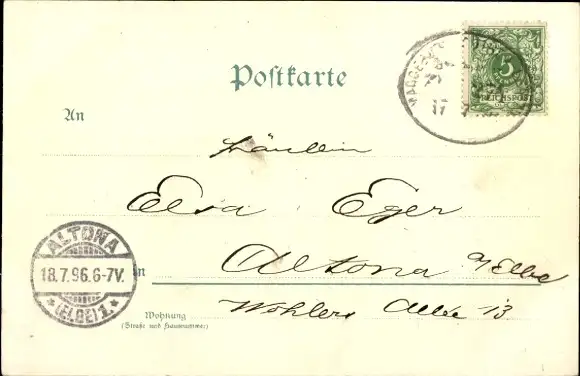 Postkarte
5
REICHSPOST
17
An
Fräulein
Elsa Eger
in Altona a/Elbe
Wohlers Allee 13
Wohnung
(Straße und Hausnummer)
ALTONA
18.7.96.6-7V.
* (ELBE) 1. *